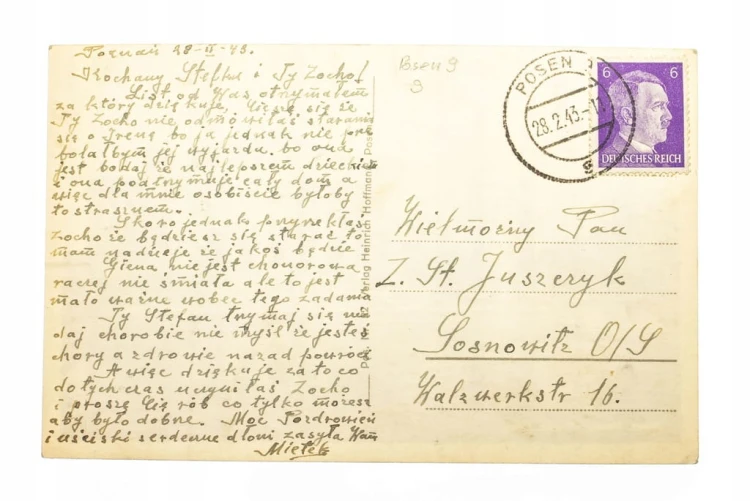 Poznań 28-II-43.
Kochany Stefku i Ty Zocho!
List od Was otrzymałem
za który dziękuję. Cieszę się że
Ty Zocho nie odmówiłaś starania
się o Irenę bo ja jednak nie prze
bolałbym jej wyjazdu. bo ona
jest bodaj że najlepszem dzieckiem
i ona podtrzymuje cały dom a
więc dla mnie osobiście byłoby
to strasznem.
Skoro jednak przyrzekłaś
Zocho że będziesz się starać to
mam nadzieję że jakoś będzie
nie jest honorowa
raczej nie śmiała ale to jest
mało ważne wobec tego zadania
Ty Stefan trzymaj się nie
daj chorobie nie myśl że jesteś
chory a zdrowie nazad powróci
A więc dziękuję za to co
dotychczas uczyniłaś Zocho
i proszę Cię rób co tylko możesz
aby było dobrze. Moc Pozdrowień
i uściski serdeczne dłoni zasyła Wam
Mietek
Verlag Heinrich Hoffmann
Posen 9
9
POSEN
28.2.43.-17
6 6
DEUTSCHES REICH
Wielmożny Pan
Z. St. Juszczyk
Sosnowitz O/S
Walzwerkstr 16.